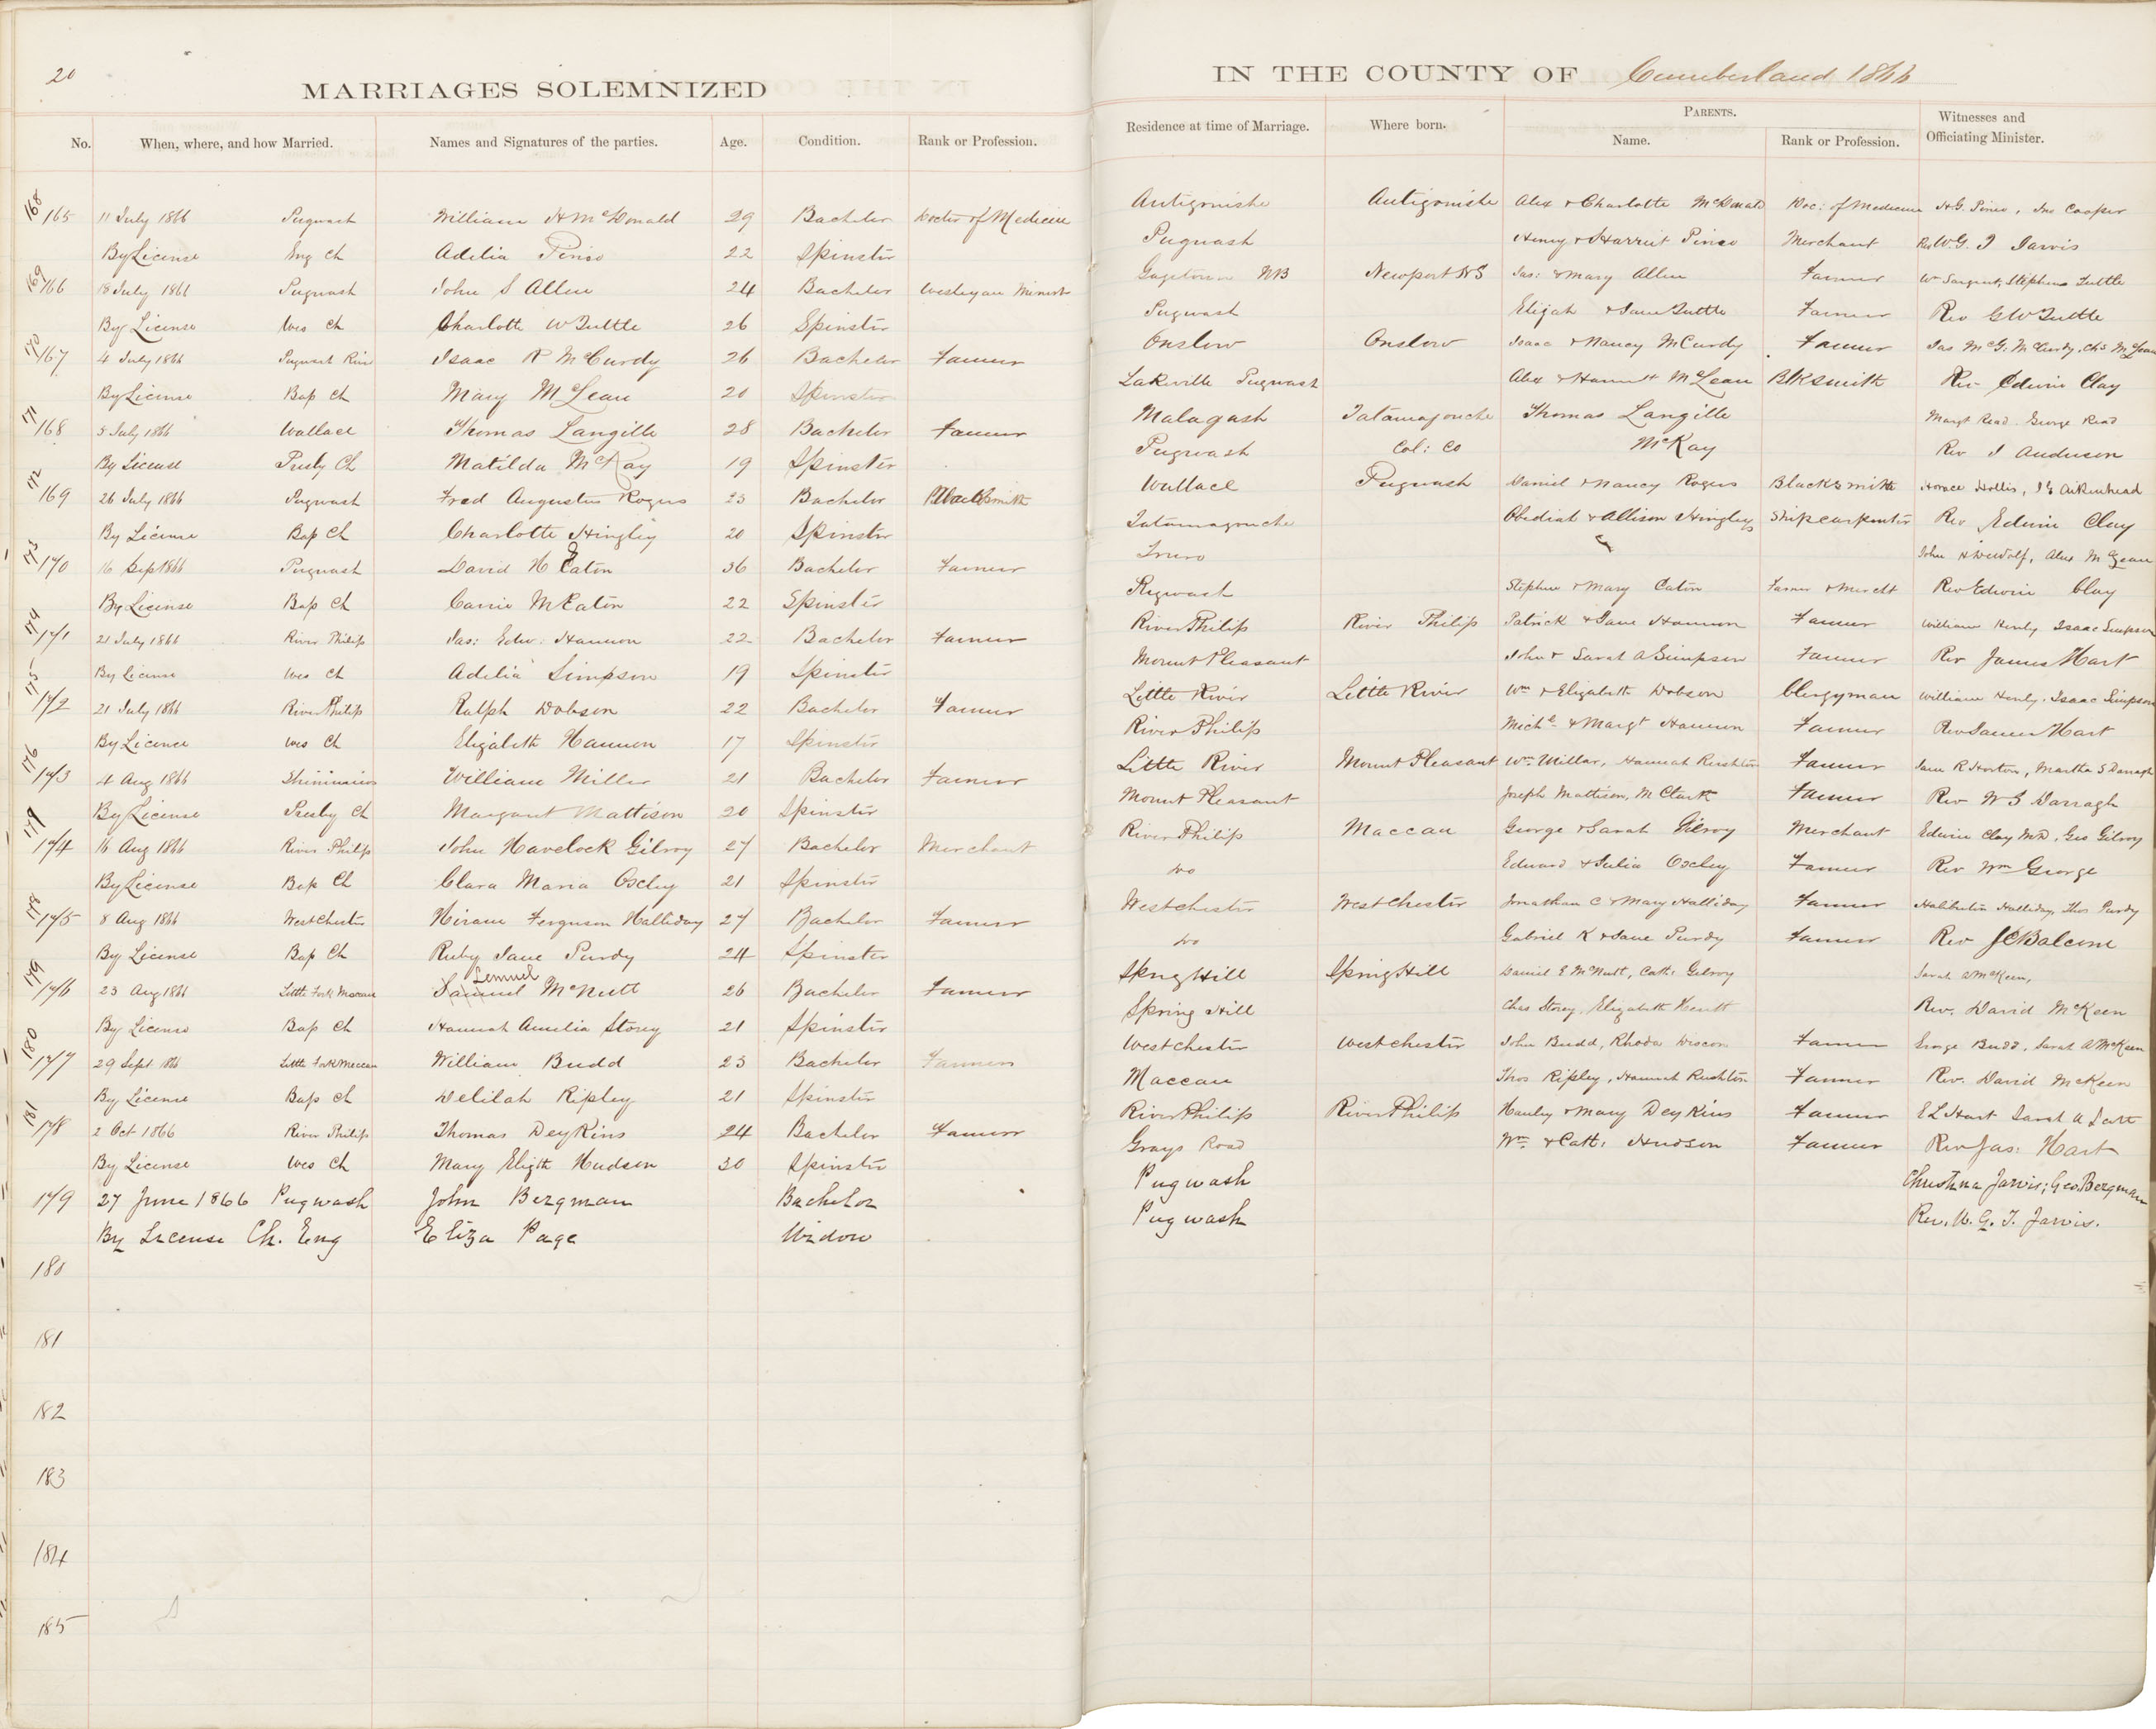 20
MARRIAGES SOLEMNIZED
IN THE COUNTY OF Cumberland 1866
No. When, where, and how Married. Names and Signatures of the parties. Age. Condition. Rank or Profession. Residence at time of Marriage. Where born. PARENTS. Name. Rank or Profession. Witnesses and Officiating Minister.
168
165 11 July 1866 Pugwash William H McDonald 29 Bachelor Doctor of Medicine Antigonishe Antigonishe Alex & Charlotte McDonald Doc: of Medecine H.G. Pineo, Jno Cooper
By License Eng Ch Adelia Pineo 22 Spinster Pugwash Henry & Harriet Pineo Merchant Rev W G T Jarvis
169
166 18 July 1866 Pugwash John S Allen 24 Bachelor Wesleyan Minister Gagetown NB Newport NS Jas: & Mary Allen Farmer Wm Sargent, Stephen Tuttle
By License Wes Ch Charlotte W Tuttle 26 Spinster Pugwash Elijah & Jane Tuttle Farmer Rev G W Tuttle
170
167 4 July 1866 Pugwash River Isaac R McCurdy 26 Bachelor Farmer Onslow Onslow Isaac & Nancy McCurdy Farmer Jas McG. McCurdy, Chs McLean
By License Bap Ch Mary McLean 20 Spinster Lakeville Pugwash Alex & McLean BlKsmith Rev Edwin Clay
171
168 5 July 1866 Wallace Thomas Langille 28 Bachelor Farmer Malagash Tatamagouche Thomas Langille Margt Read. George Read
By License Presby Ch Matilda McKay 19 Spinster Pugwash Col: Co McKay Rev J Anderson
172
169 26 July 1866 Pugwash Fred Augustus Rogers 23 Bachelor Blacksmith Wallace Pugwash Daniel & Nancy Rogers Blacksmith Horace Hollis, Aikenhead
By License Bap Ch Charlotte Hingley 20 Spinster Tatamagouche Obediah & Allison Hingley Shipcarpenter Rev Edwin Clay
173
170 16 Sep 1866 Pugwash David H Eaton 36 Bachelor Farmer Truro John N DeWolf, Alex McLean
By License Bap Ch Carrie M Eaton 22 Spinster Pugwash Stephen & Mary Eaton Farmer & Mercht Rev Edwin Clay
174
171 21 July 1866 River Philip Jas: Edw: Hannon 22 Bachelor Farmer River Philip River Philip Patrick & Jane Hannon Farmer William Henly Isaac Simpson
By License Wes Ch Adelia Simpson 19 Spinster Mount Pleasant John & Sarah A Simpson Farmer Rev James Hart
175
172 21 July 1866 River Philip Ralph Dobson 22 Bachelor Farmer Little River Little River Wm & Elizabeth Dobson Clergyman William Henly, Isaac Simpson
By Licence Wes Ch Elizabeth Hannon 17 Spinster River Philip Michl & Margt Hannon Farmer Rev James Hart
176
173 4 Aug 1866 William Miller 21 Bachelor Farmer Little River Mount Pleasant Wm Millar, Hannah Rushton Farmer Jane R Horton, Martha S Darragh
By License Presby Ch Margaret Mattison 20 Spinster Mount Pleasant Joseph Mattison, M Clark Farmer Rev W S Darragh
177
174 16 Aug 1866 River Philip John Havelock Gilroy 27 Bachelor Merchant River Philip Maccan George & Sarah Gilroy Merchant Edwin Clay MD, Geo Gilroy
By License Bap Ch Clara Maria Oxley 21 Spinster Do Edward & Julia Oxley Farmer Rev Wm George
178
175 8 Aug 1866 Westchester Hiram Ferguson Halliday 27 Bachelor Farmer Westchester Westchester Jonathan C & Mary Halliday Farmer Haliburton Halliday, Thos Purdy
By License Bap Ch Ruby Jane Purdy 24 Spinster Do Gabriel K & Jane Purdy Farmer Rev J C Balcom
179
Lemuel
176 23 Aug 1866 Little Fork Maccan Samuel McNutt 26 Bachelor Farmer Spring Hill Spring Hill Daniel E McNutt, Cath: Gilroy Sarah A McKeen,
By License Bap Ch Hannah Amelia Storey 21 Spinster Spring Hill Chas Storey, Elizabeth Rev. David McKeen
180
177 29 Sept 1866 Little Fork Maccan William Budd 23 Bachelor Farmer Westchester Westchester John Budd, Rhoda Farmer George Budd, Sarah A McKeen
By License Bap Ch Delilah Ripley 21 Spinster Maccan Thos Ripley, Hannah Rushton Farmer Rev. David McKeen
181
178 2 Oct 1866 River Philip Thomas DeyKins 24 Bachelor Farmer River Philip River Philip & Mary DeyKins Farmer E L Hart Sarah A
By License Wes Ch Mary Elizth Hudson 30 Spinster Grays Road Wm & Cath: Hudson Farmer Rev Jas: Hart
179 27 June 1866 Pugwash John Bergman Bachelor Pugwash Christina Jarvis; Geo. Bergman
By License Ch. Eng Eliza Page Widow Pugwash Rev. W. G. T. Jarvis.
180
181
182
183
184
185